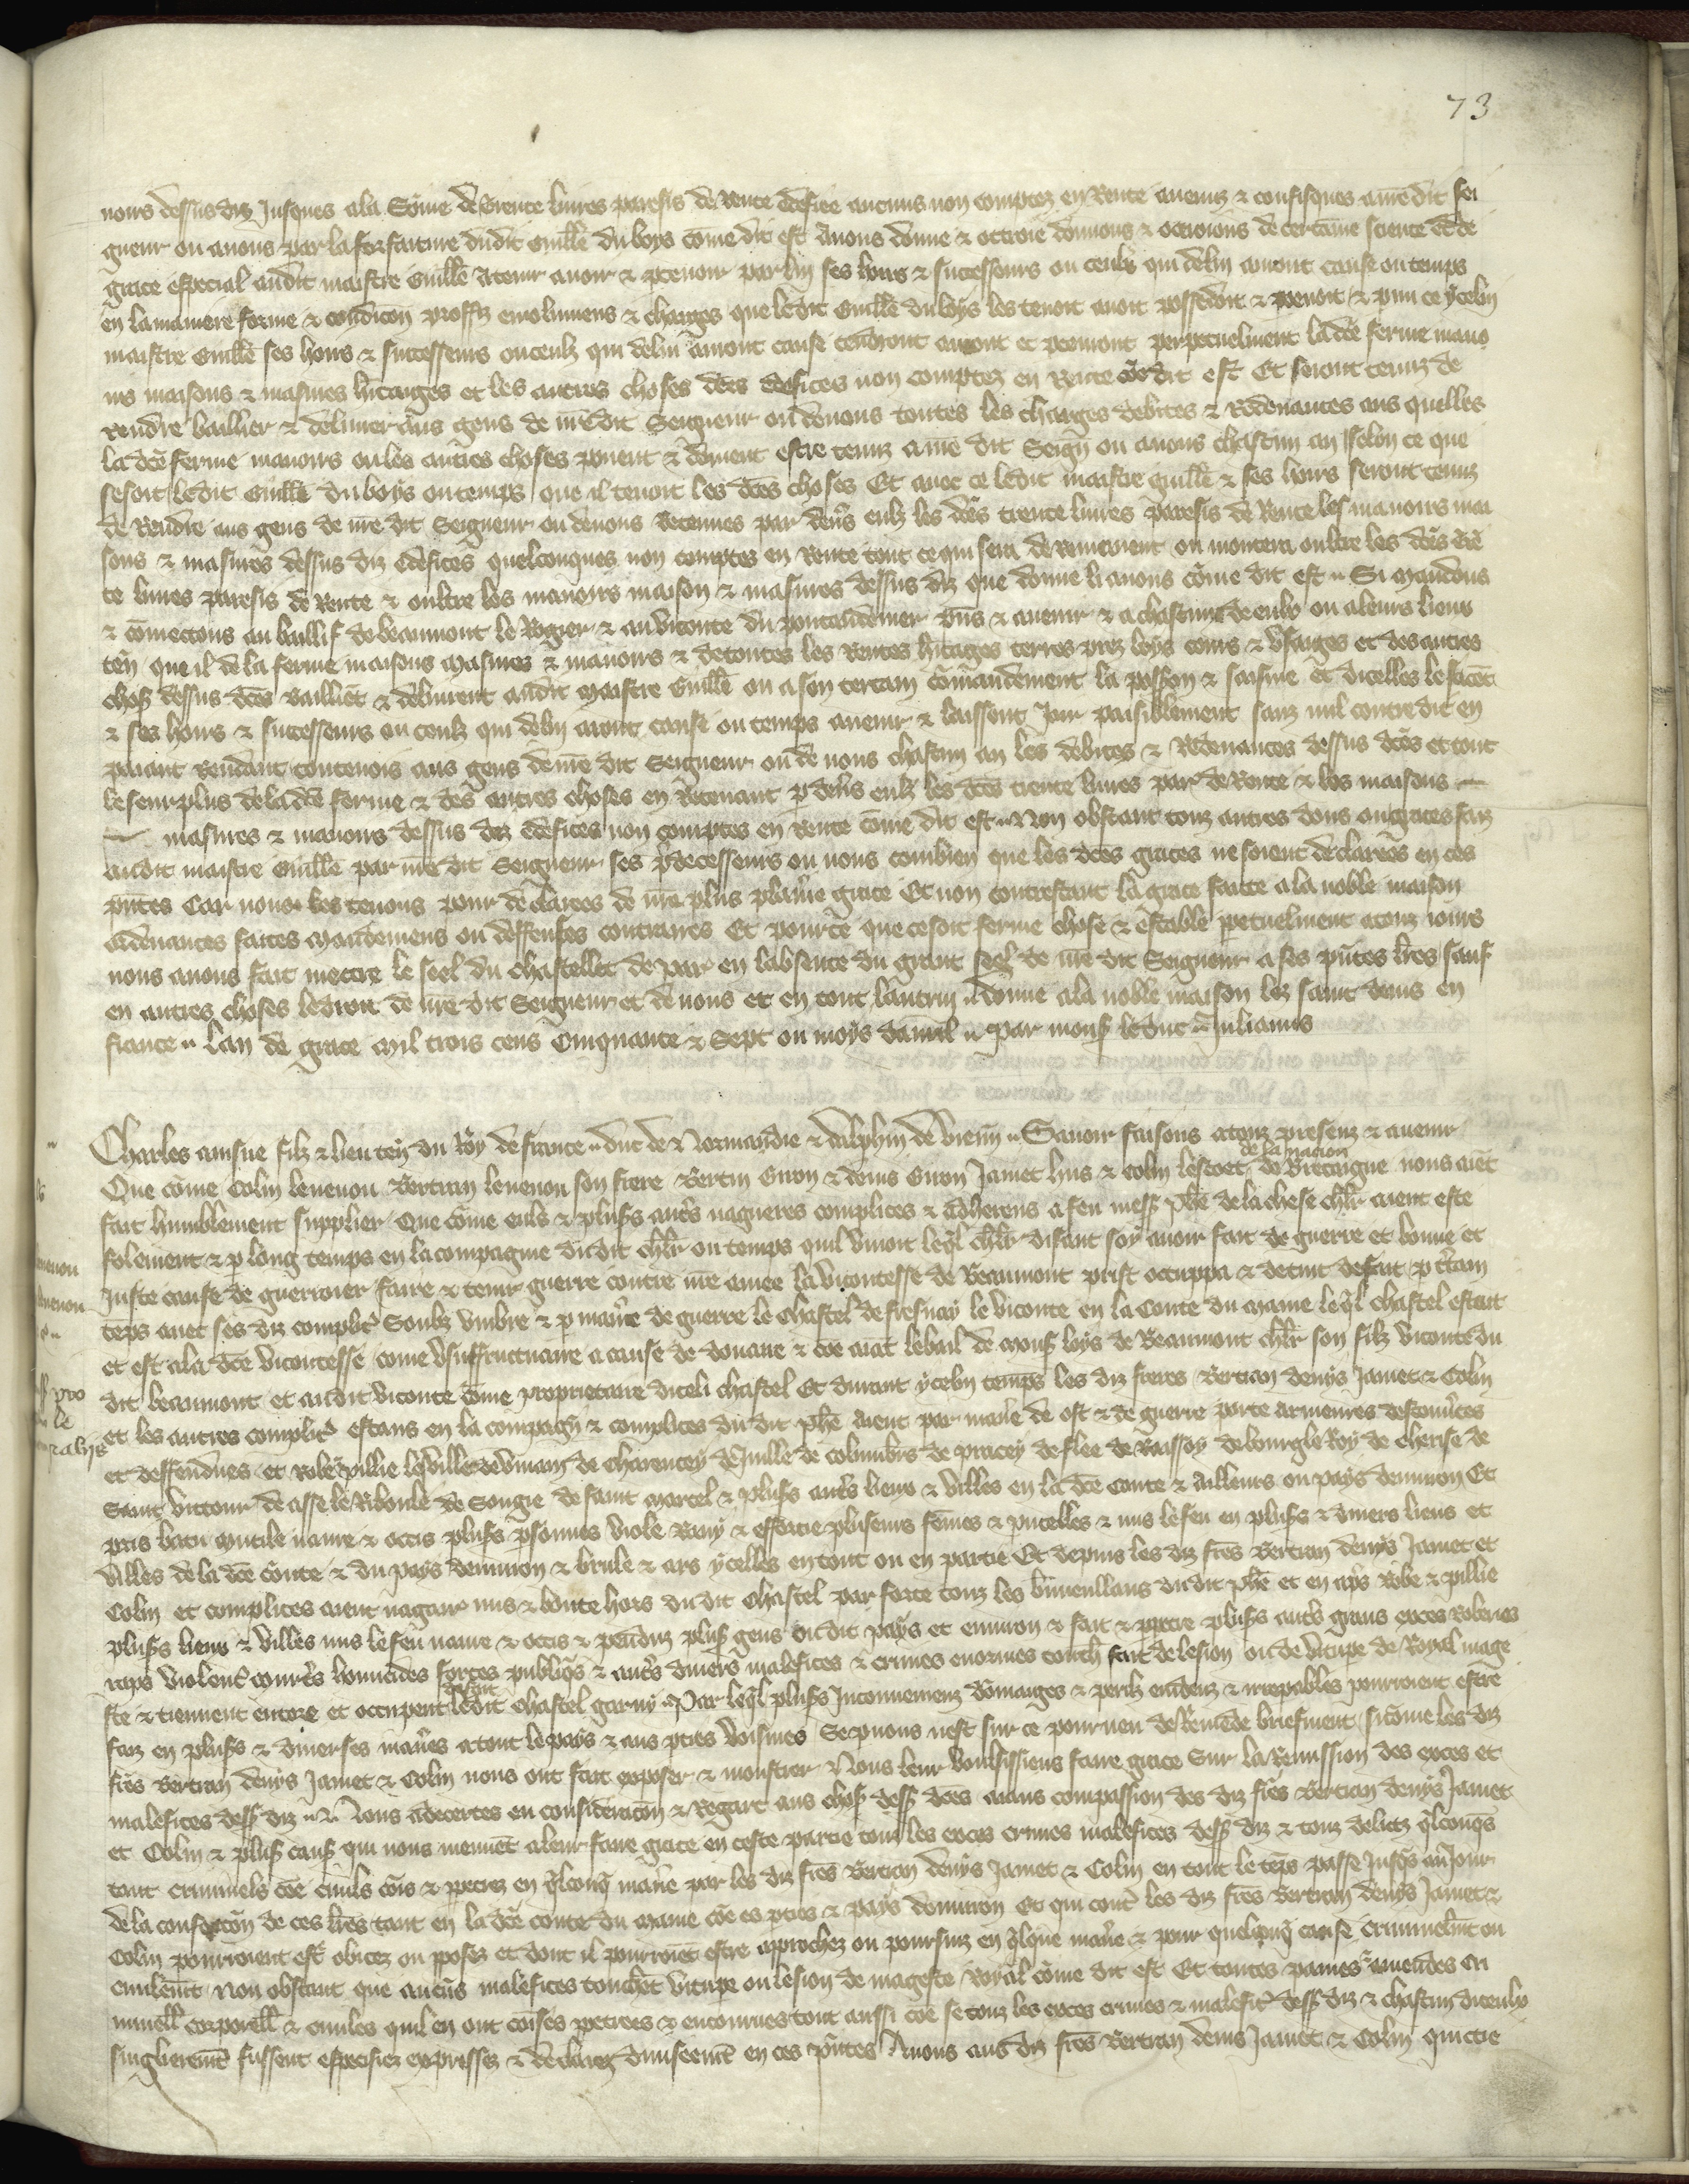 73
noirs dessus diz Jusques a la Some de trente livres parisis de Rente edefice aucuns non comptez en Rente avenuz & confisques a mon dit sei
gneur ou a nous par la forfaiture du dit Guille du boys come dit est Avons donne & ottroie donnons & octroions de certaine science et de
grace especial audit maistre Guille A tenir avoir & percevoir par luy ses hoirs & successeurs ou ceulx qui de luy auront cause ou temps
en la maniere forme & condicon proffiz emolumens & charges que le dit Guille du boys les tenoit avoit possedoit & prenoit & prin ce ycelui
maistre Guille ses hoirs & successeurs ou ceulx qui de lui auront cause tendront auront et prenront perpetuelment la dce ferme mano
irs maisons & masures hitaiges et les autres choses dces edefices non comptez en Rente coe dit est Et seront tenuz de
rendre baillier & delivrer aus gens de mon dit Seigneur ou de nous toutes les charges debites & Redevances aus quelles
la dce ferme manoirs ou les autres choses pevent & doivent estre tenuz a mon dit Seign ou a nous chascun an selon ce que
fesoit ledit Guille du boys ou temps que il tenoit les dces choses Et avec ce ledit maistre Guille & ses hoirs seront tenuz
de Rendre aus gens de nre dit Seigneur ou de nous Retenues par devs eulx les dces trente livres parisis de Rente les manoirs mai
sons & masures dessus diz edefices quelconques non comptez en Rente tout ce qui sera de Remenent ou montera oultre les dces tren
te livres parisis de Rente & oultre les manoirs maison & masures dessus diz que donne li avons come dit est Si Mandons
& cometons au baillif de beaumont le Rogier & au viconte du ponteaudemer pns & avenir & a chascun de eulx ou a leurs lieux
ten que il de la ferme maisons masures & manoirs & de toutes les Rentes hitages terres prez boys cours & usaiges et des autres
chos dessus dces baillent & delivrent audit maistre Guille ou a son certain comandement la possion & saisine et dicelles le facent
& ses hoirs & successeurs ou ceulx qui de luy auront cause ou temps avenir & laissent Joir paisiblement sanz nul contredit en
paiant Rendant toutevois aus gens de mon dit Seigneur ou de nous chascun an les debites & Redevances dessus dces et tout
le seurplus de la dce ferme & des autres choses en Retenant p devs eulx les dces trente livres par de Rente & les maisons
masures & manoirs dessus diz edefices non comptes en rente come dit est Non obstant touz autres dons ou graces faiz
audit maistre Guille par mon dit Seigneur ses pdecesseurs ou nous combien que les dces graces ne soient declarees en ces
pntes Car nous les tenons pour declarees de nre plus plaine grace Et non contrestant la grace faicte a la noble maison
ordenances faites mandemens ou deffenses contraires Et pour ce que ce soit ferme chose & estable ppetuelment a touz iours
nous avons fait mectre le seel du chastellet de par en labsence du grant seel de nre dit Seigneur a ses pntes lres sauf
en autres choses le droit de nre dit Seigneur et de nous et en tout lautruy donne a la noble maison lez saint denis en
france Lan de grace mil trois cens Cinquante & Sept ou moys davril Par mons le duc Julianus
Charles ainsne filz & lieuten du Roy de france duc de Normandie & dalphin de vienn Savoir faisons a touz presenz & avenir
Que come Colin levenou Bertran levenou son frere Bertin Guon & denis Guon Jamet hus & Colin lescoet de la nacion de Bretaigne nous aient
fait humblement supplier Que come euls & pluss auts nagueres complices & adherens a feu mess Phe de la chese chlr aient este
folement & p long temps en la compagnie du dit chlr ou temps quil vivoit leql chlr disant soy avoir fait de guerre et bonne et
Juste cause de guerroier faire & tenir guerre contre nre amee la vicontesse de Beaumont prist occuppa & detint de fait p ctain
teps avec ses diz complic Soubz umbre & p maniere de guerre le Chastel de fresnay le viconte en la Conte du Maine leql chastel estoit
et est a la dce vicontesse come Usuffructuaire a cause de douaire & coe aiat le bail de mons loys de Beaumont chlr son filz viconte du
dit beaumont et audit viconte come proprietaire diceli chastel Et durant ycelui temps les diz freres Bertran denys Jamet & Colin
et les autres complic estans en la compagn & complices du dit Phe Aient par maniere de ost & de guerre porte armeures descouvtes
et deffendues et Robe pillie les villes de vivain de charencey de Juille de columbiers de piacey de flee de Raissoy de bourg le Roy de cherise de
Saint victour de asse le Riboule de Sougie de saint marcel & pluss auts lieux & villes en la dce Conte & ailleurs ou pays denviron Et
pris batu mutile navre & occis pluss psonnes viole Ravy & efforcie pluseurs femes & pucelles & mis le feu en pluss & divers lieux et
villes de la dce conte & du pays denviron & brule & ars ycelles en tout ou en partie Et depuis les diz fres Bertran denys Jamet et
Colin et complices aient nagair mis & boute hors du dit Chastel par force touz les bienveullans du dit Phe et en aps Robe & pillie
pluss lieux & villes mis le feu navre & occis & penduz pluss gens du dit pays et environ & fait & ppetre pluss auts grans exces Roberies
raps violenc homicides forces publiqs & auts divers malefices & crimes enormes touch fait de lesion ou de vitupe de Royal mage
ste & tiennent encore et occupent de fait ledit chastel garny Par leql pluss Inconveniens domaiges & perilz evidenz & irrepables pourroient estre
faiz en pluss & diverses manieres a tout le pays & aus pties voisines Se p nous nest sur ce pourveu de Remede briefment sicome les diz
fres Bertran denys Jamet & Colin nous ont fait exposer & monstrer Nous leur voulsissiens faire grace Sur la Remission des exces et
malefices dess diz Nous adecertes en consideracon & Regart aus chos dess dces aians compassion des diz fres Bertran denys Jamet
et Colin & pluss caus qui nous meuvent a leur faire grace en ceste partie touz les exces crimes malefices dess diz & touz delictz qlconqs
tant criminels coe civils comis & ppetrez en qlconq maniere par les diz fres Bertran denys Jamet & Colin en tout le teps passe Jusqs au Jour
de la confeccon de ces lres tant en la dce conte du Maine coe es pties & pays denviron Et qui contre les diz fres Bertran denys Jamet &
Colin pourroient est obicez ou pposez et dont il pourroient estre approchez ou poursuiz en qlque maniere & pour quelconq cause criminelmt ou
civilemt Non obstant que aucuns malefices touchet vitupe ou lesion de mageste Royal come dit est Et toutes paines amendes cri
minell corporell & civiles quil en ont comises ppetrees & encourues tout aussi coe se touz les exces crimes & malefic dess diz & chascun diceulx
singlierement fussent especifiez expressez & declarez diviseemt en ces pntes Avons aus diz fres Bertran denis Jamet & Colin quictie